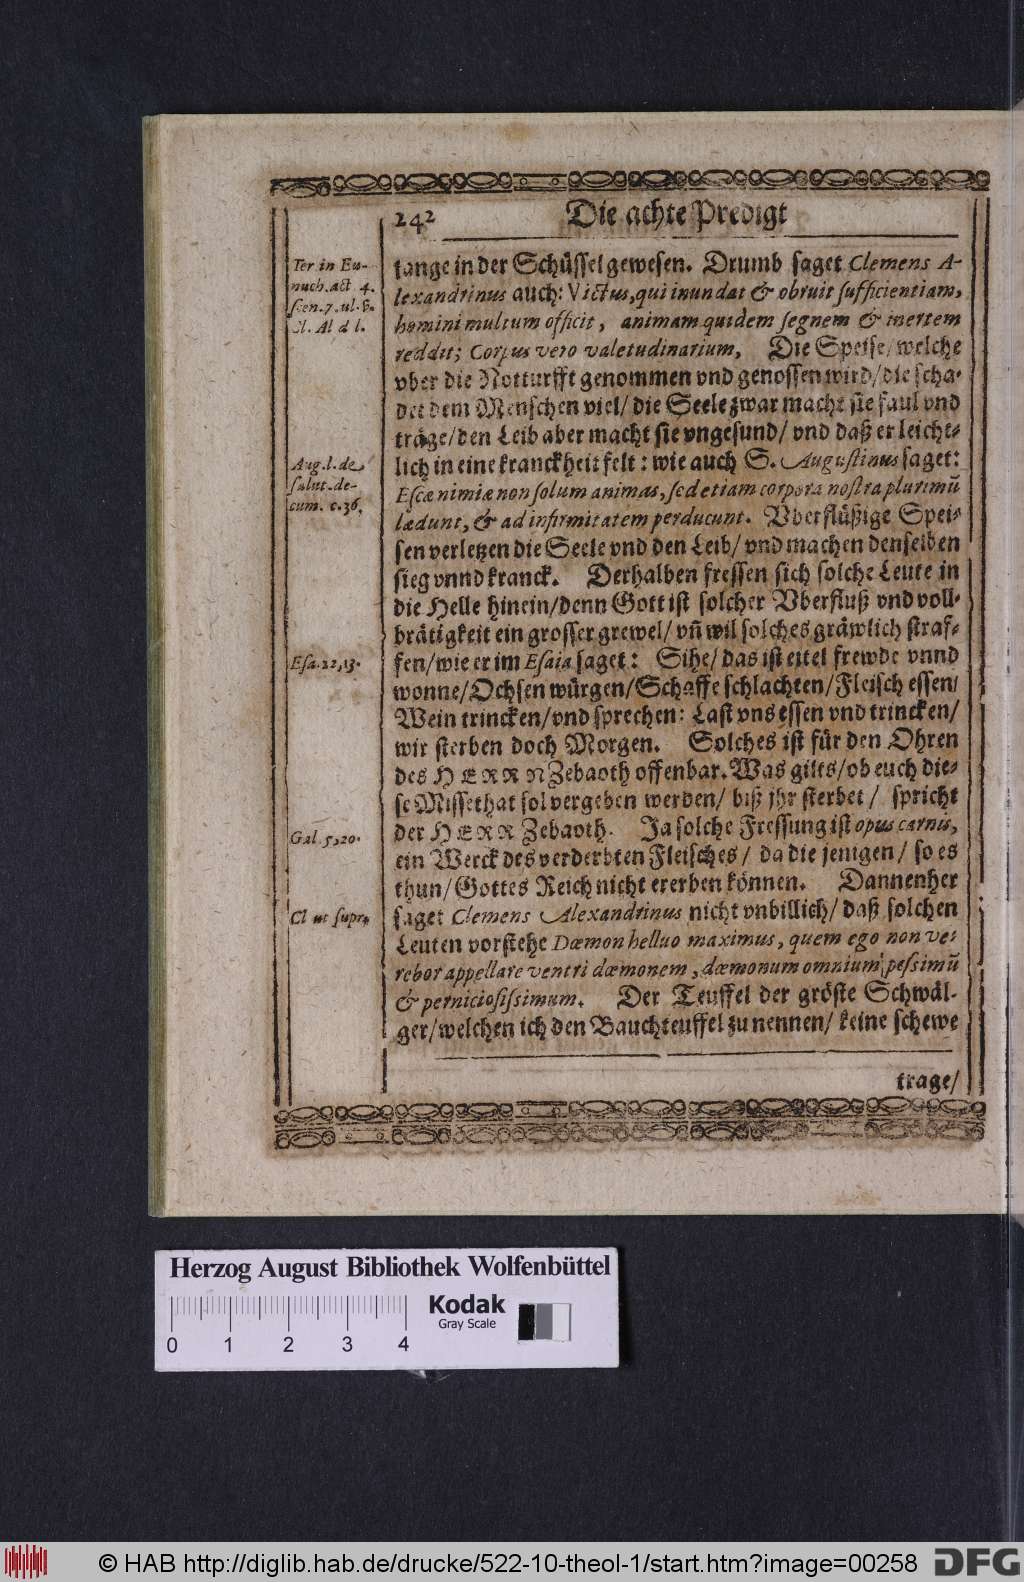 242 Die achte Predigt
lange in der Schüssel gewesen. Drumb saget Clemens A-
lexandrinus auch: Victus, qui inundat & obruit sufficientiam,
homini multum officit, animam quidem segnem & inertem
reddit; Corpus vero valetudinarium, Die Speise/welche
vber die Notturfft genommen vnd genossen wird/die scha-
det dem Menschen viel/ die Seele zwar macht sie faul vnd
träge/den Leib aber macht sie vngesund/ vnd daß er leicht-
lich in eine kranckheit felt: wie auch S. Augustinus saget:
Escæ nimiæ non solum animas, sed etiam corpora nostra plurimũ
lædunt, & ad infirmitatem perducunt. Vberflüßige Spei-
sen verletzen die Seele vnd den Leib/ vnd machen denselben
sieg vnnd kranck. Derhalben fressen sich solche Leute in
die Helle hinein/denn Gott ist solcher Vberfluß vnd voll-
brätigkeit ein grosser grewel/ vñ wil solches gräwlich straf-
fen/wie er im Esaia saget: Sihe/ das ist eitel frewde vnnd
wonne/Ochsen würgen/Schaffe schlachten/Fleisch essen/
Wein trincken/vnd sprechen: Last vns essen vnd trincken/
wir sterben doch Morgen. Solches ist für den Ohren
des HERRN Zebaoth offenbar. Was gilts/ob euch die-
se Missethat sol vergeben werden/ biß jhr sterbet/ spricht
der HERR Zebaoth. Ja solche Fressung ist opus carnis,
ein Werck des verderbten Fleisches/ da die jenigen/ so es
thun/Gottes Reich nicht ererben können. Dannenher
saget Clemens Alexandrinus nicht vnbillich/ daß solchen
Leuten vorstehe Dæmon helluo maximus, quem ego non ve-
rebor appellare ventri dæmonem, dæmonum omnium pessimũ
& perniciosissimum. Der Teuffel der gröste Schwäl-
ger/welchen ich den Bauchteuffel zu nennen/ keine schewe
trage/
Ter in Eu-
nuch. act 4.
scen. 7. ul. &.
Cl. Al d l.
Aug. l. de
salut. do-
cum. c. 36.
Esa. 22,13.
Gal. 5,20.
Cl ut supr.
Herzog August Bibliothek Wolfenbüttel
0 1 2 3 4
Kodak
Gray Scale
© HAB http://diglib.hab.de/drucke/522-10-theol-1/start.htm?image=00258 DFG